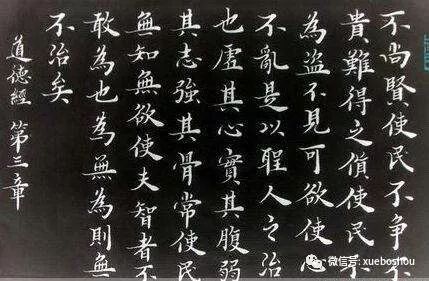 不尚賢使民不争不
貴難得之貨使民不
為盜不見可欲使心
不亂是以聖人之治
也虛其心實其腹弱
其志強其骨常使民
無知無欲使夫智者不
敢為也為無為則無
不治矣
道德經 第三章
微信号: xueboshou